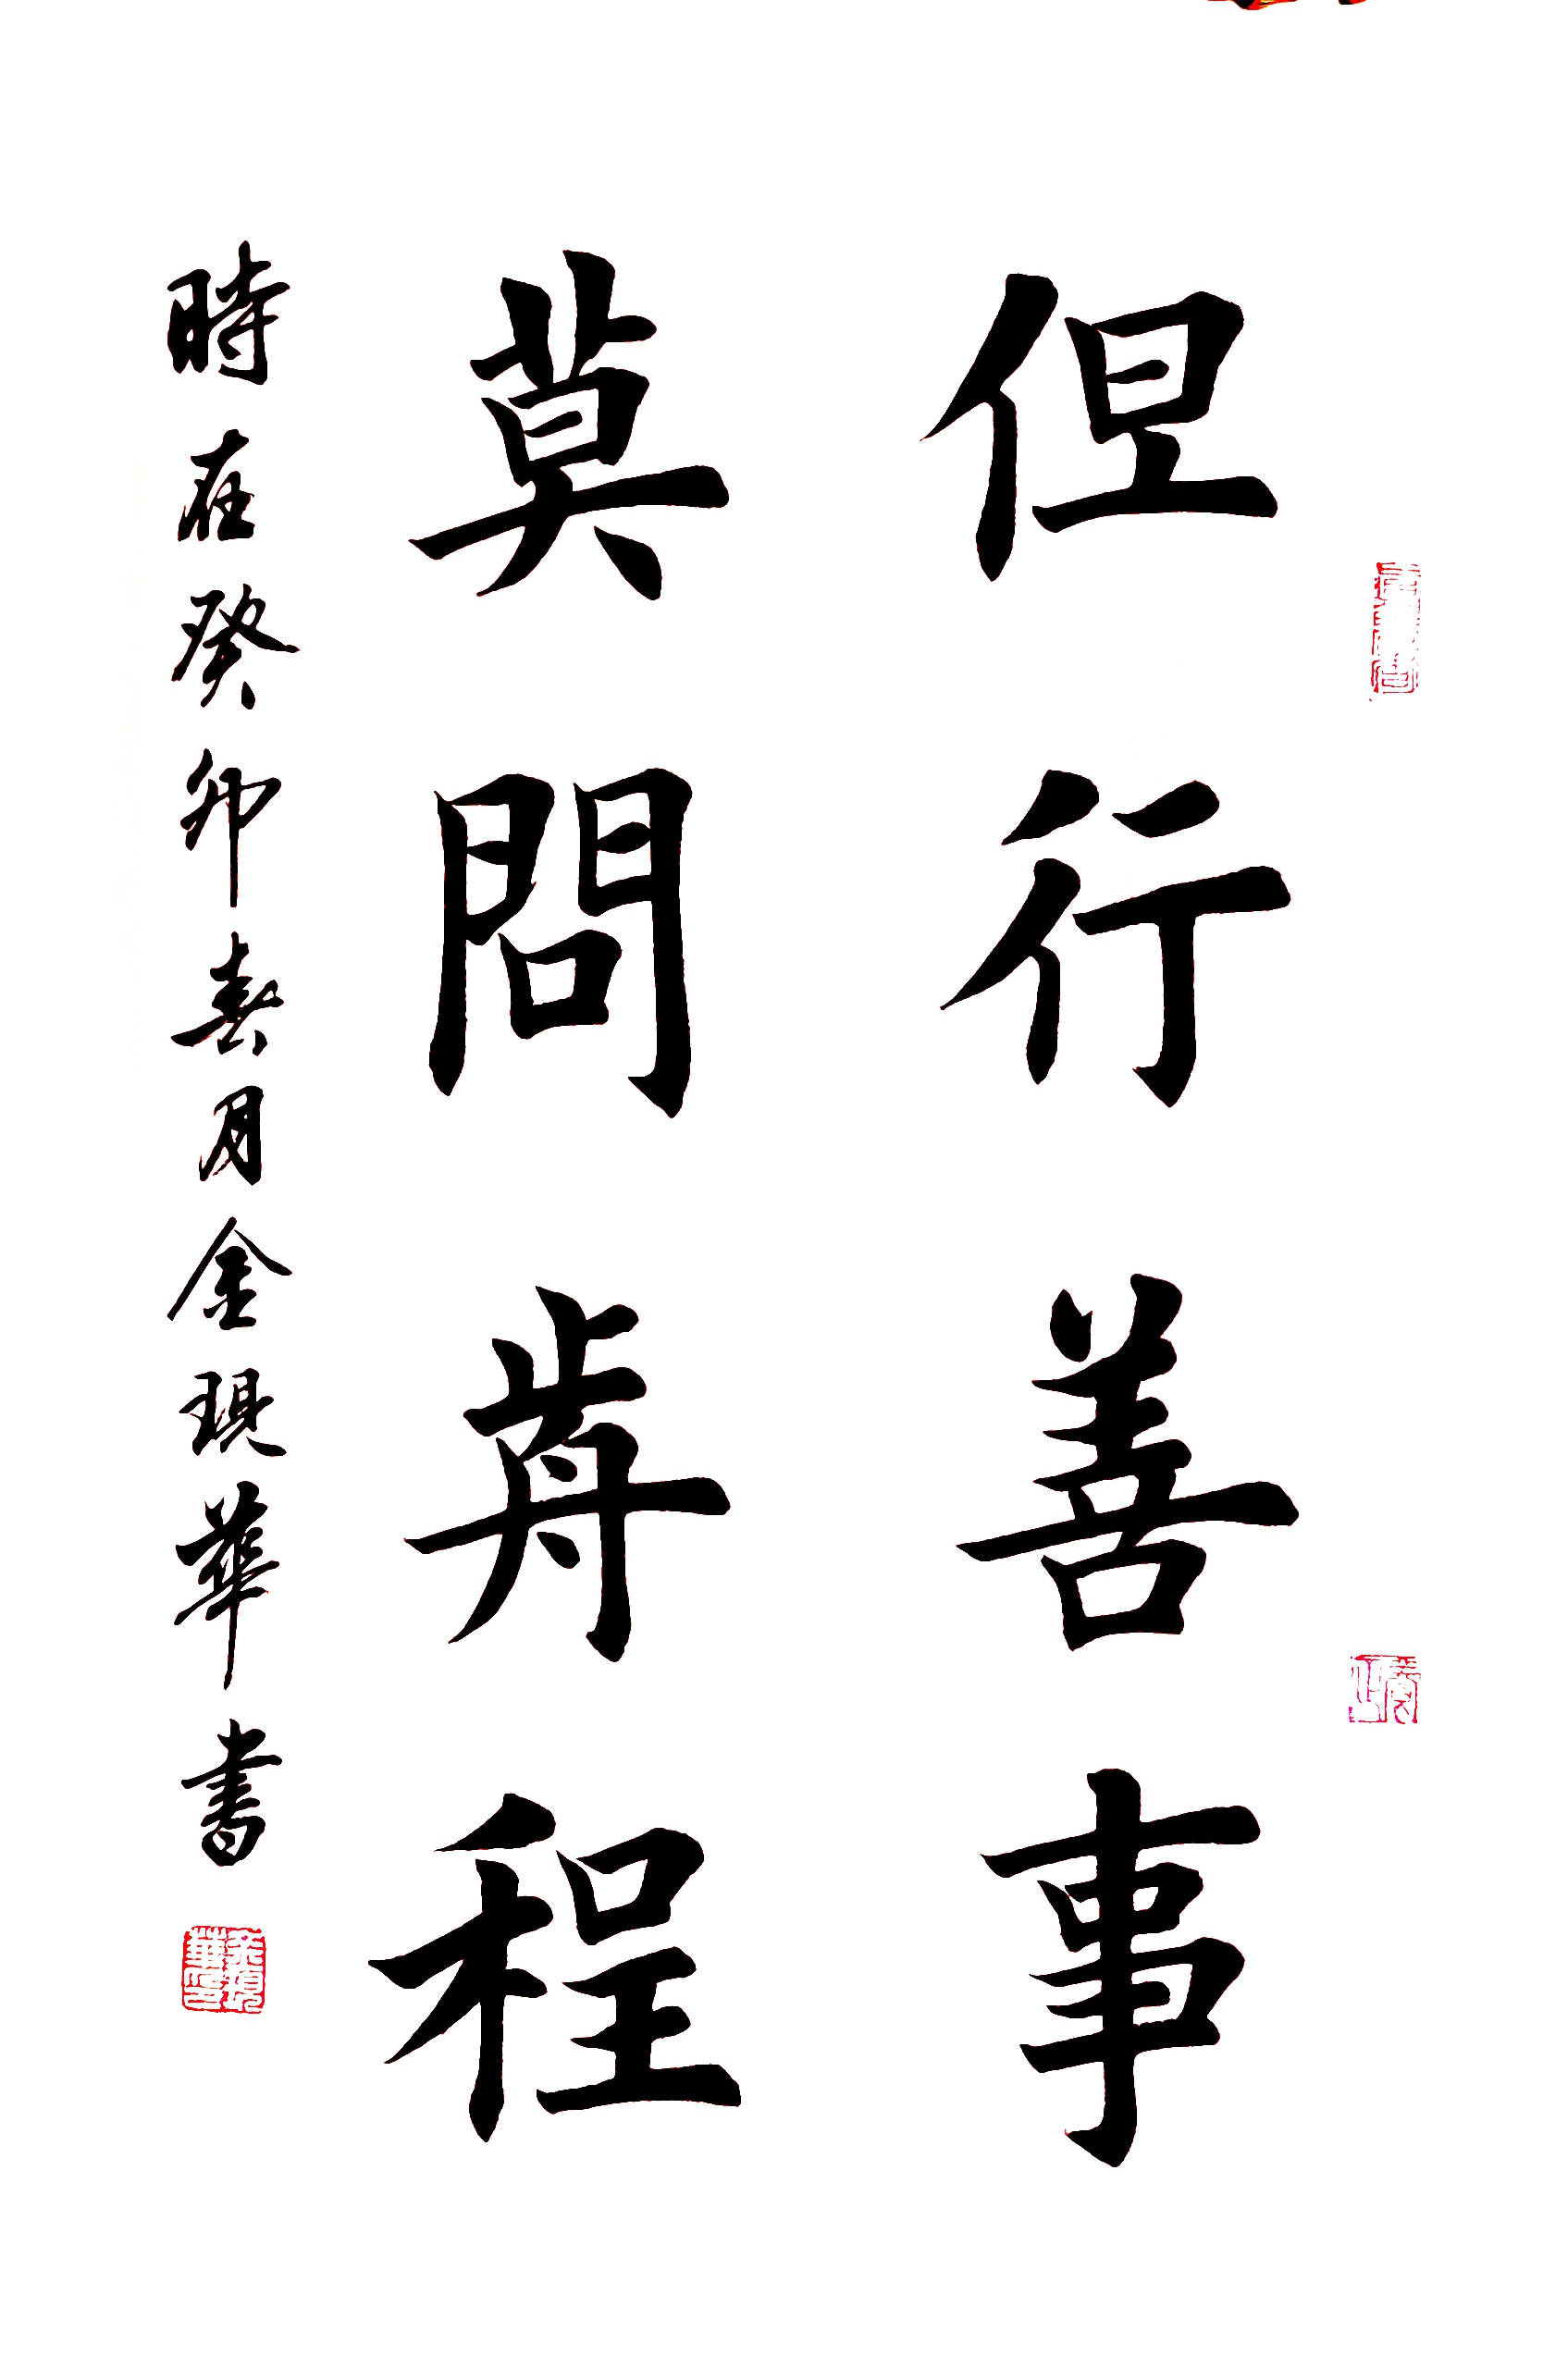 但行善事
莫問歬程
時在癸卯春月金現華書